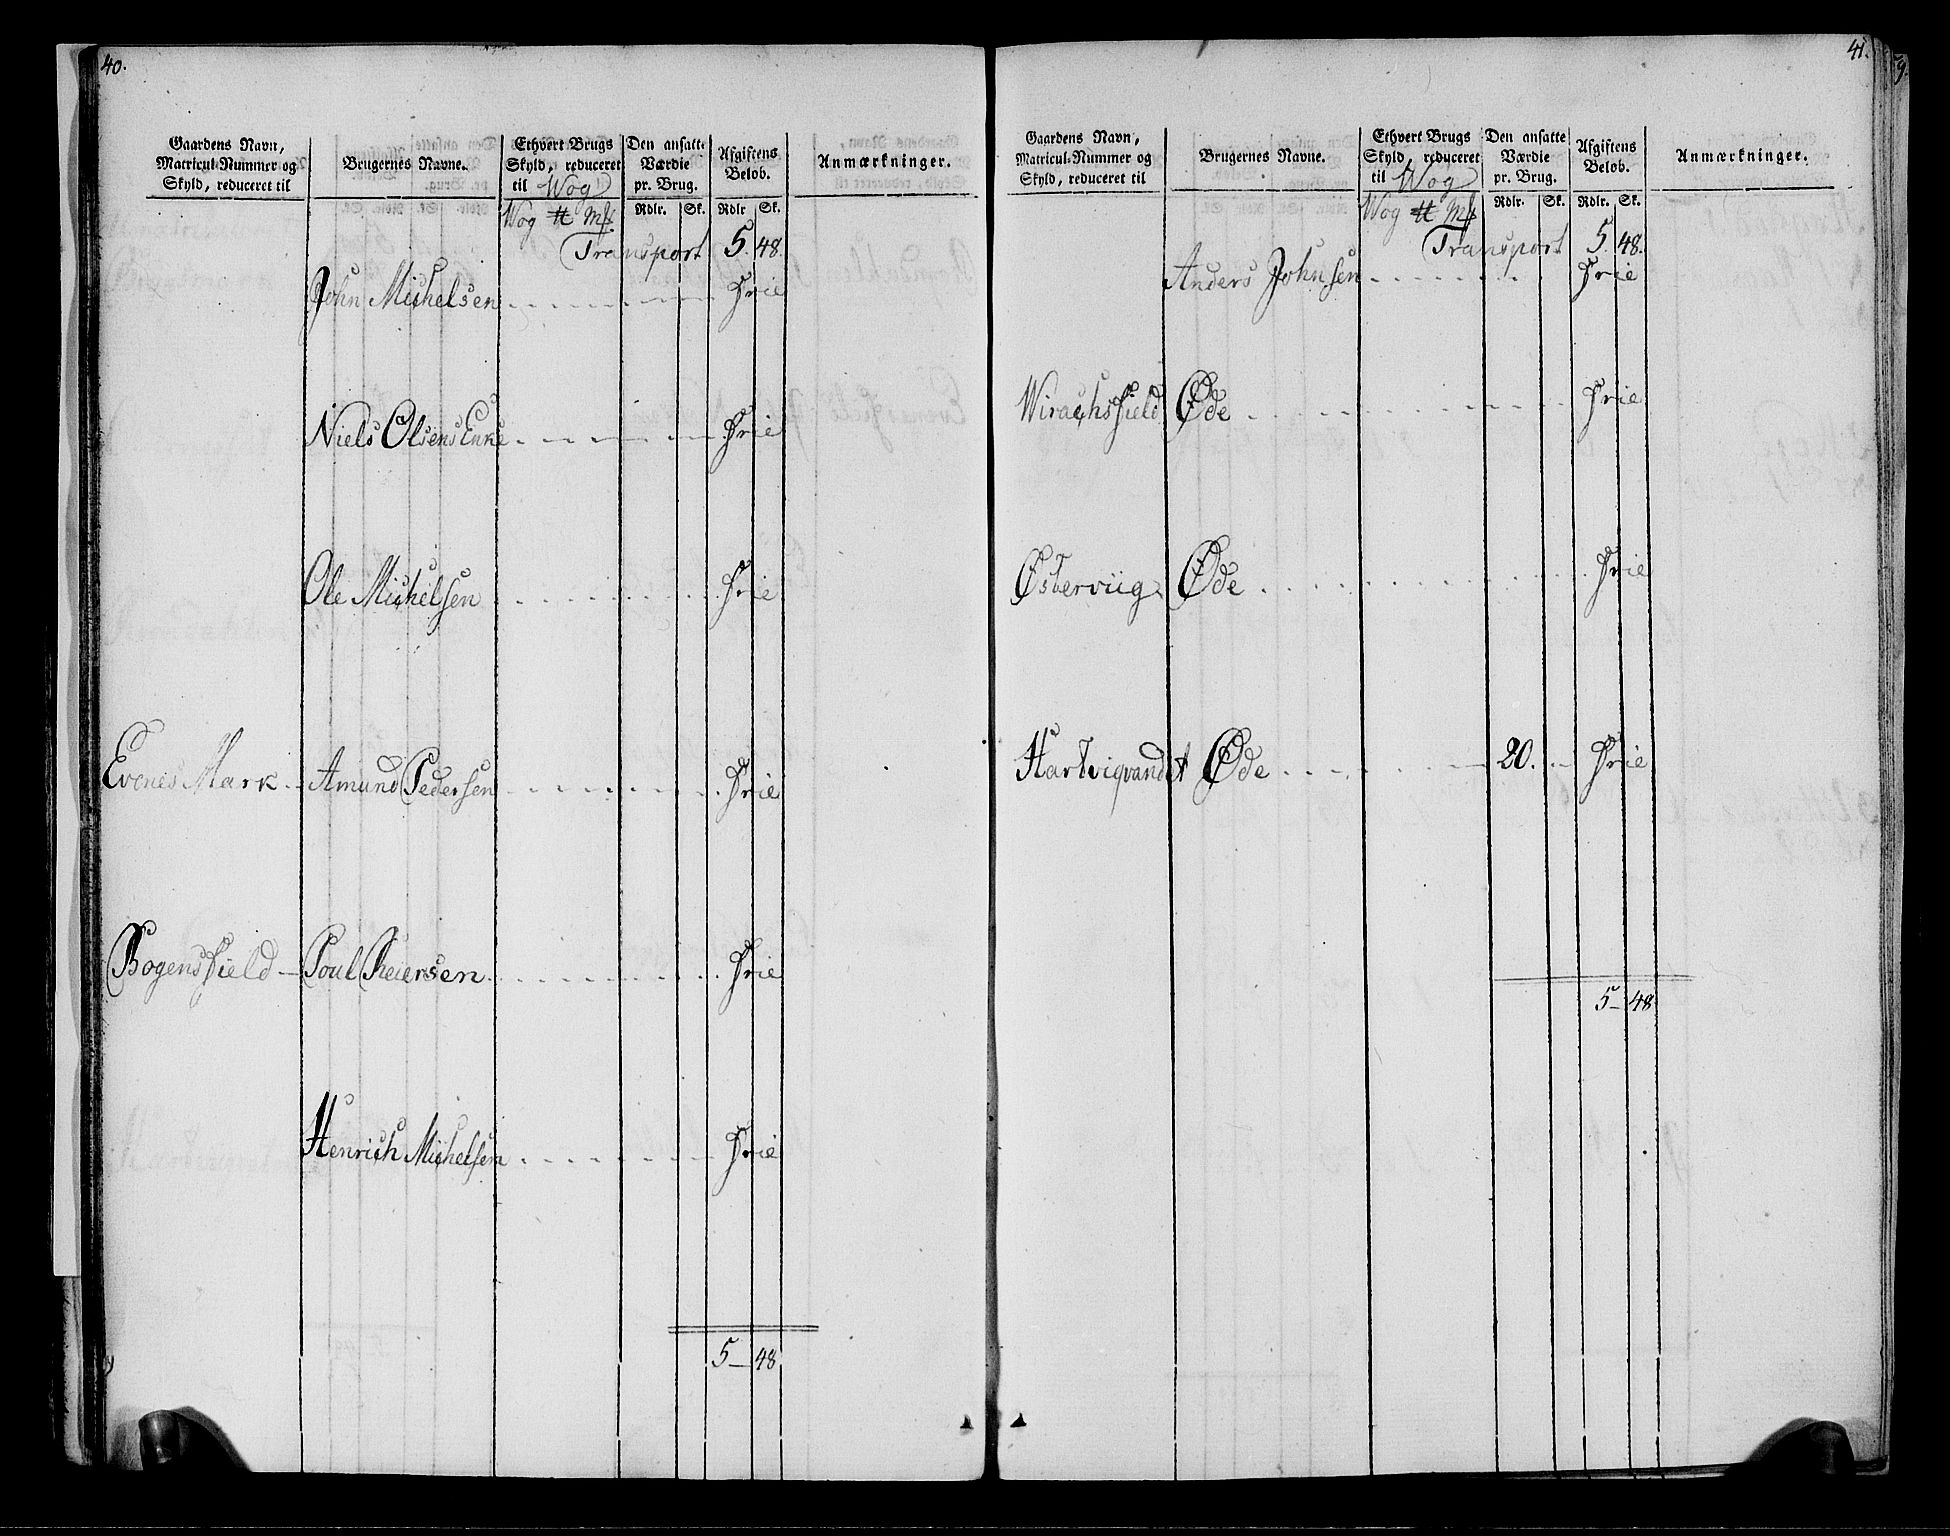 40.
Gaardens Navn, Matricul-Nummer og Skyld, reduceret til
Brugernes Navne.
Ethvert Brugs Skyld, reduceret til Wog
Den ansatte Værdie pr. Brug.
Afgiftens Beløb.
Anmærkninger.
Wog ℔ Mk
Rdlr. Sk. Rdlr Sk.
Transport 5. 48.
John Michelsen Frie
Niels Olsens Enke Frie
Ole Michelsen Frie
Evenes Mark Amund Pedersen Frie
Bogensfield Poul Reiersen Frie
Henrich Michelsen Frie
5 48
41.
Gaardens Navn, Matricul-Nummer og Skyld, reduceret til
Brugernes Navne.
Ethvert Brugs Skyld, reduceret til Wog
Den ansatte Værdie pr. Brug.
Afgiftens Beløb.
Anmærkninger.
Wog ℔ Mk
Rdlr. Sk. Rdlr. Sk.
Transport 5. 48.
Anders Johnsen Frie
Wirachsfield Øde Frie
Østerviig Øde Frie
Hartvigvandet Øde 20. Frie
5 48